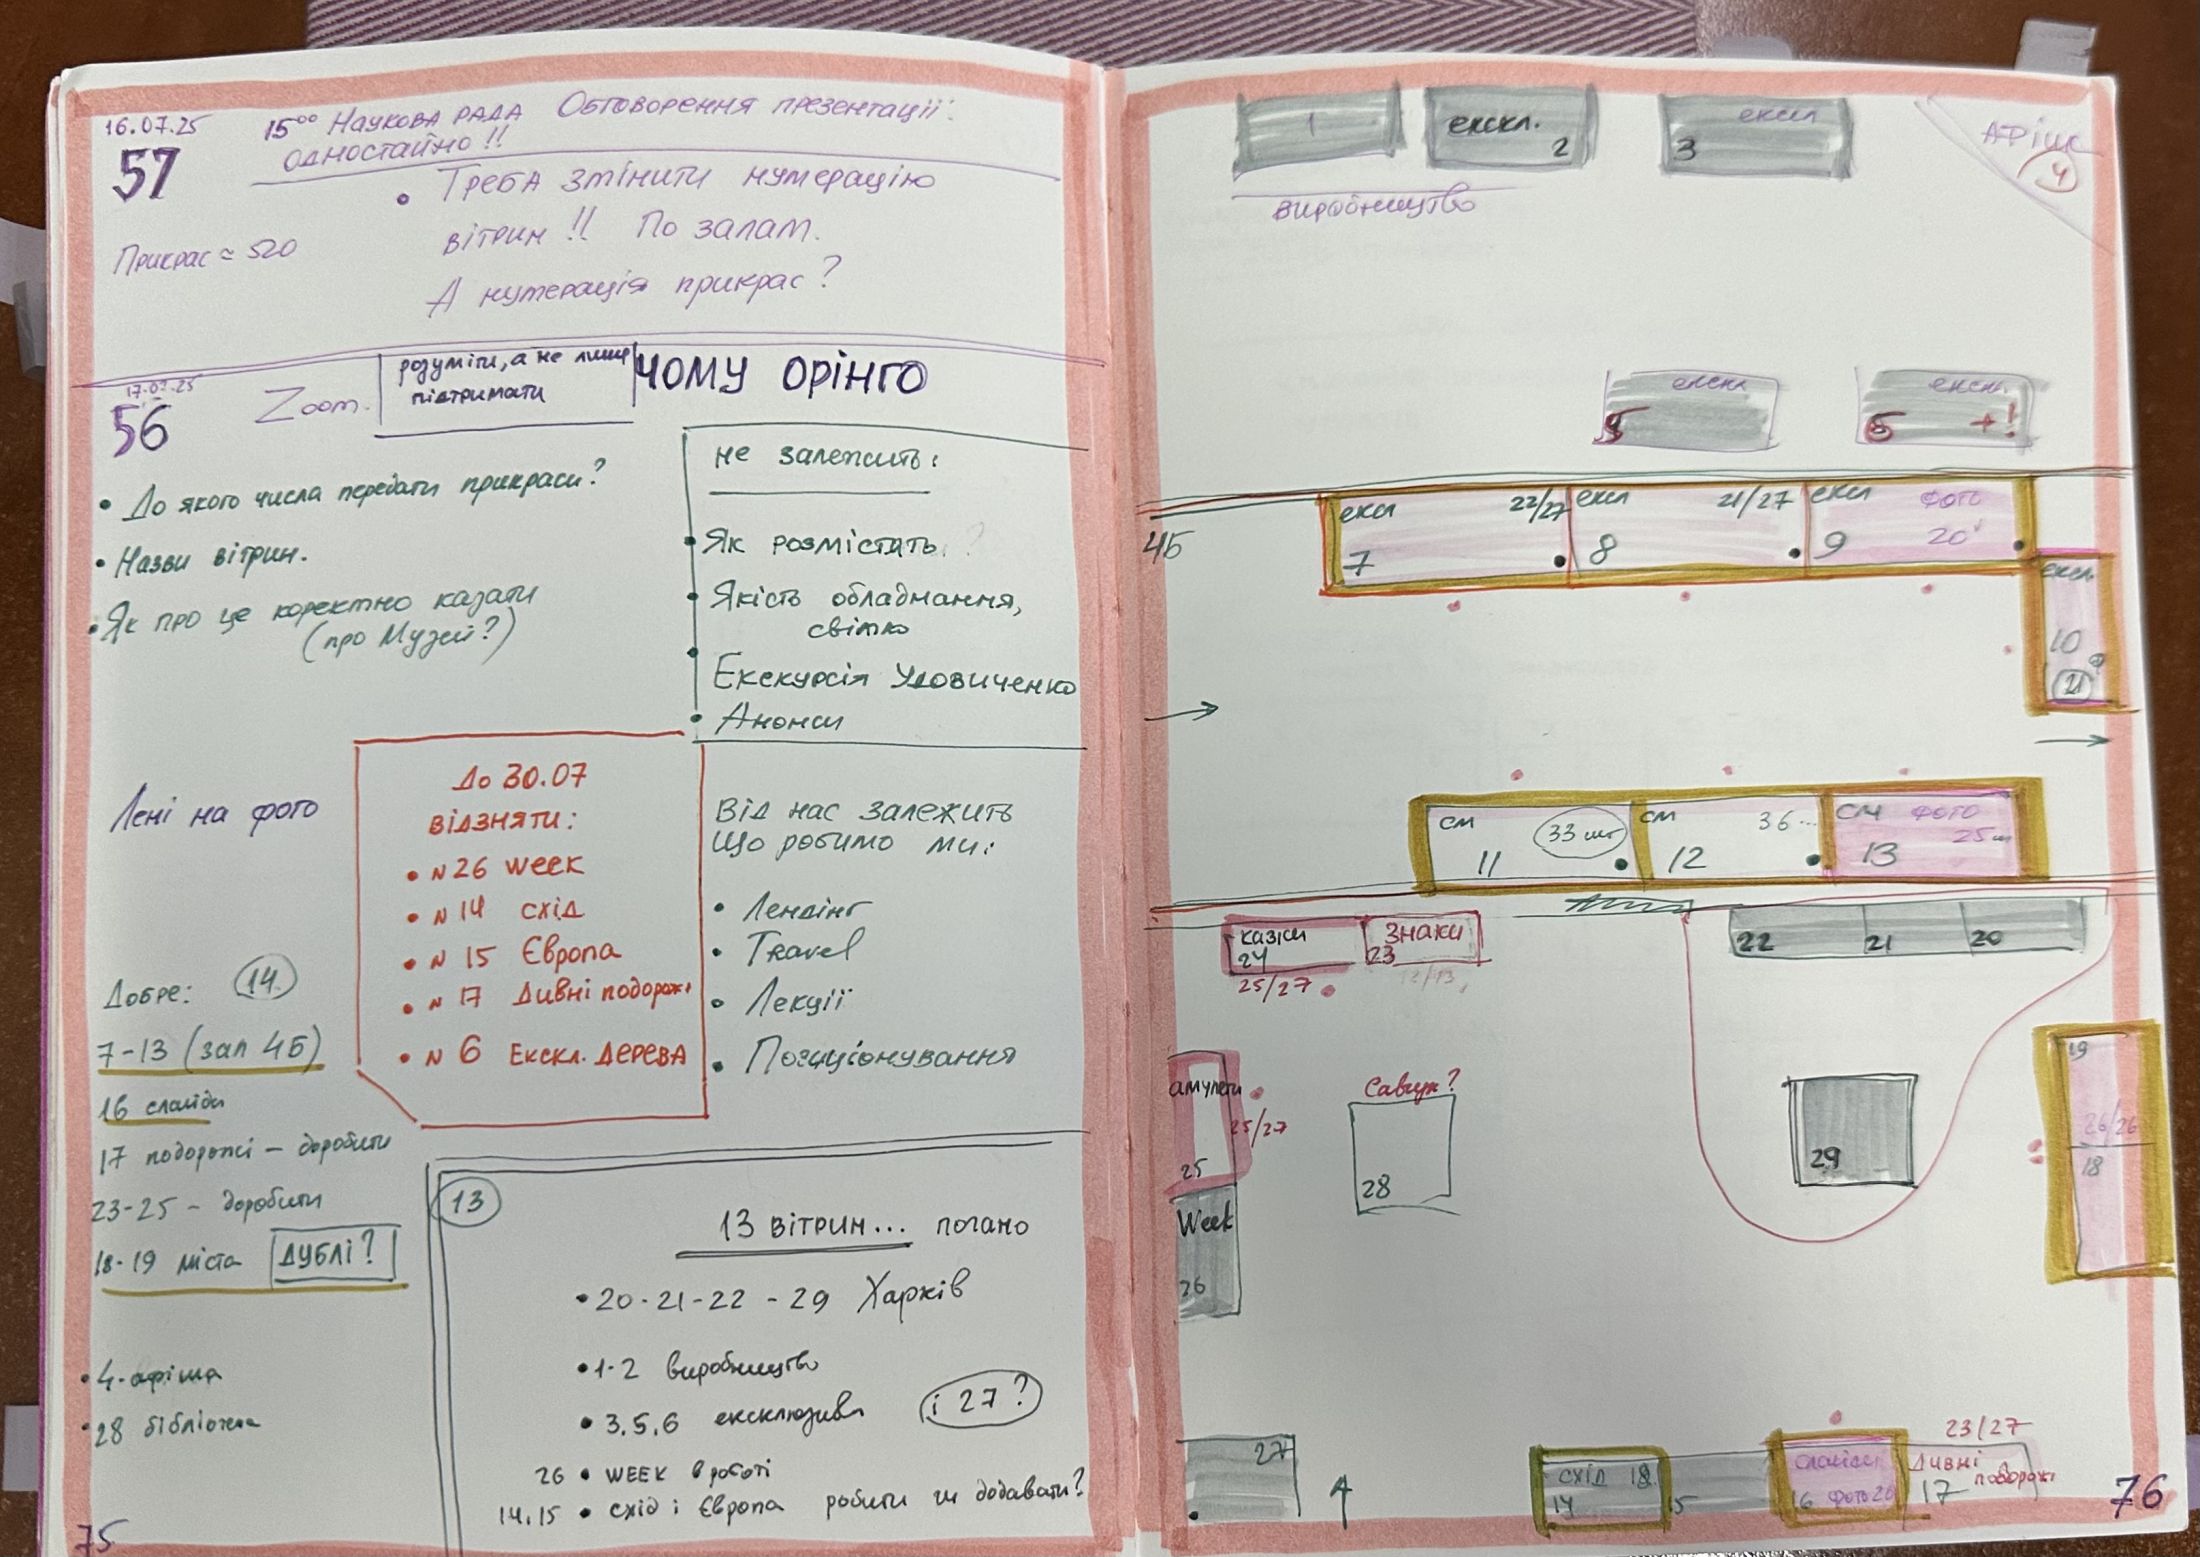 16.07.25
57
15⁰⁰ Наукова рада Обговорення презентації:
одностайно!!
• Треба змінити нумерацію
вітрин!! По залам.
А нумерація прикрас?
Прикрас ≈ 520
17.07.25
56
Zoom.
розуміти, а не лише
підтримати
ЧОМУ ОРІНГО
• До якого числа передати прикраси?
• Назви вітрин.
• Як про це коректно казати
(про Музей?)
не залежить:
• Як розмістать?
• Якість обладнання,
світло
• Екскурсія Удовиченко
• Анонси
Лені на фото
До 30.07
відзняти:
• N 26 week
• N 14 схід
• N 15 Європа
• N 17 Дивні подорожі
• N 6 Екскл. дерева
Від нас залежить
що робимо ми:
• Лендінг
• Travel
• Лекції
• Позиціонування
Добре: 14.
7-13 (зал 4Б)
16 слайди
17 подорожі - доробити
23-25 - доробити
18-19 міста ДУБЛІ?
• 4-афіша
• 28 бібліотека
13
13 вітрин... погано
• 20-21-22 - 29 Харків
• 1-2 виробництво
• 3.5.6 ексклюзиви
і 27?
26 • WEEK в роботі
14.15 • схід і Європа робити чи додавати?
75
1
екскл.
2
екскл
3
Афіша
4
виробництво
екскл
5
екскл.
6 +!
4Б
екскл 22/27
7
екскл 21/27
8
екскл фото
9 20
екскл.
10
21
см 33 шт
11
см 36...
12
см фото
13 25 шт
казки
24
25/27
знаки
23
12/13
22 21 20
амулети
25/27
25
Савчук?
28
29
19
26/26
18
Week
26
27
4
схід 18
14
15
слайди
16 фото 26
23/27
Дивні
подорожі
17
76